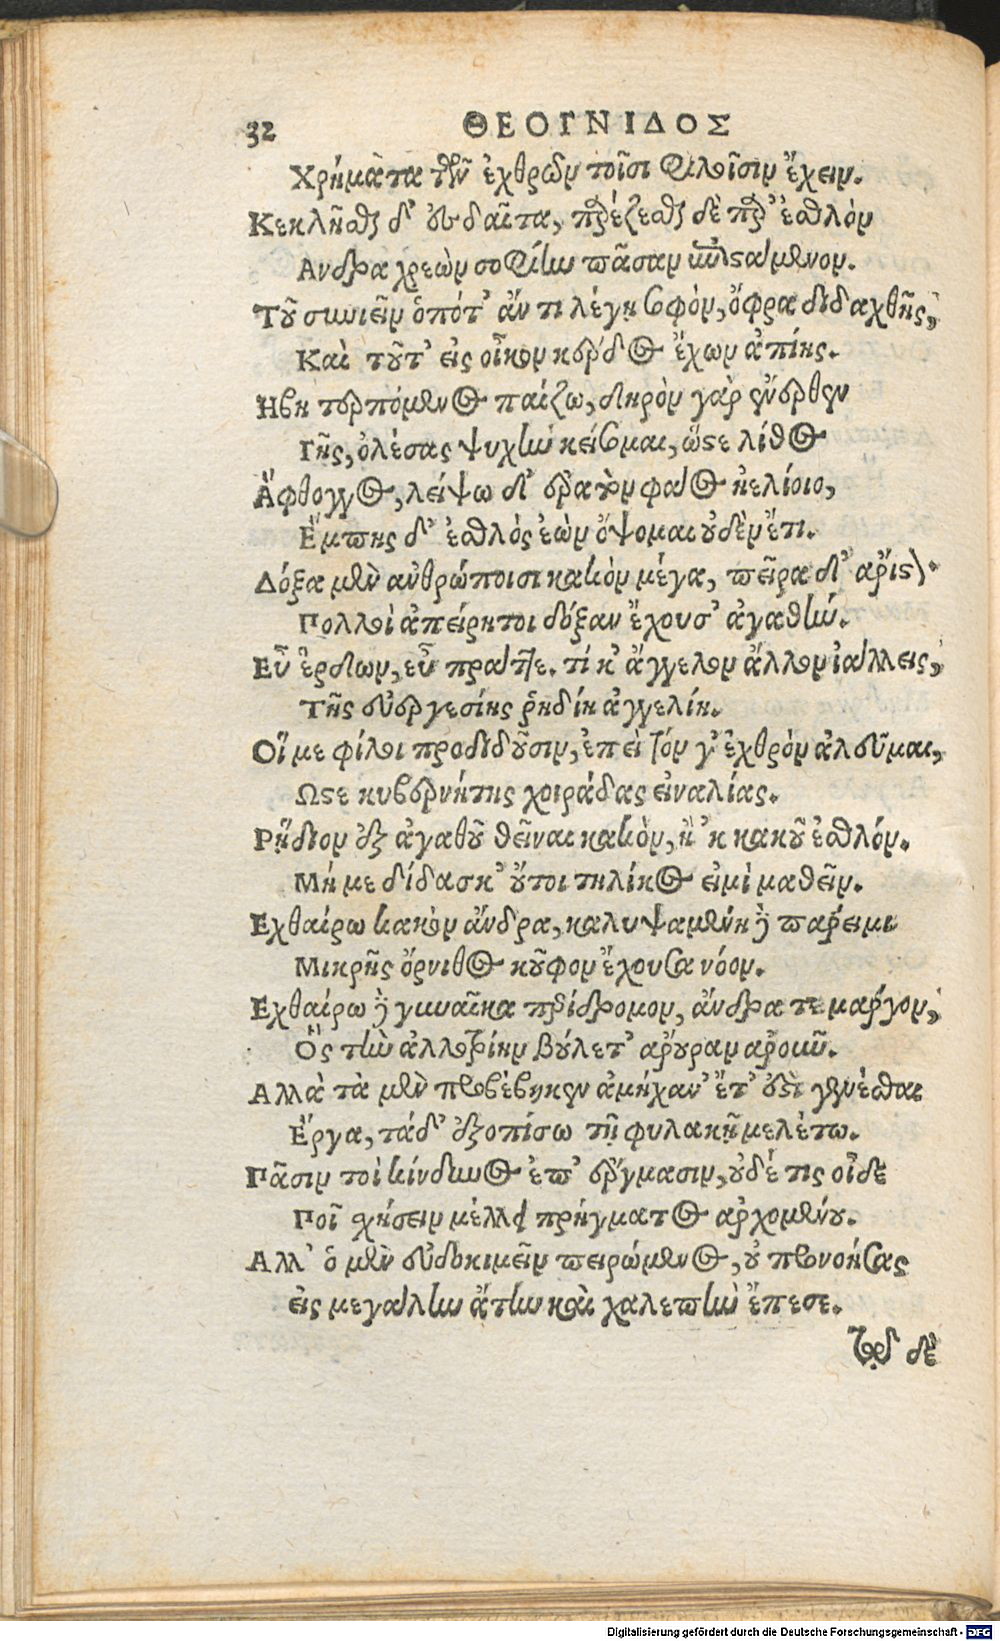 32 ΘΕΟΓΝΙΔΟΣ
Χρήματα τῶν ἐχθρῶν τοῖσι φίλοισιν ἔχειν.
Κεκλῆσθς δ' ἐς δαῖτα, παρέζεσθς δὲ παρ' ἐσθλὸν
Ανδρα χρεὼν σοφίην πᾶσαν ἐπιστάμενον.
Τοῦ συνιεῖν ὁπότ' ἄν τι λέγῃ σοφὸν, ὄφρα διδαχθῇς,
Καὶ τοῦτ' εἰς οἶκον κερδος ἔχων ἀπίῃς.
Ηβῃ τερπόμενος παίζω, δηρὸν γὰρ ἔνερθεν
Γῆς, ὀλέσας ψυχὴν κείσομαι, ὥστε λίθος
Ἄφθογγος, λείψω δ' ἐρατὸν φάος ἠελίοιο,
Ἔμπης δ' ἐσθλὸς ἐὼν ὄψομαι οὐδὲν ἔτι.
Δόξα μὲν ἀνθρώποισι κακὸν μέγα, πεῖρα δ' ἄριστον.
Πολλοὶ ἀπείρητοι δόξαν ἔχουσ' ἀγαθήν.
Εὖ ἕρδων, εὖ πράττε. τί κ' ἄγγελον ἄλλον ἰάλλεις,
Τῆς εὐεργεσίης ῥηδίη ἀγγελίη.
Οἵ με φίλοι προδιδοῦσιν, ἐπεὶ τόν γ' ἐχθρὸν ἀλεῦμαι,
Ωστε κυβερνήτης χοιράδας εἰναλίας.
Ρῄδιον ἐξ ἀγαθοῦ θεῖναι κακὸν, ἢ 'κ κακοῦ ἐσθλόν.
Μή με δίδασκ' οὔτοι τηλίκος εἰμὶ μαθεῖν.
Εχθαίρω κακὸν ἄνδρα, καλυψαμένη δὲ πάρειμι
Μικρῆς ὄρνιθος κοῦφον ἔχουσα νόον.
Εχθαίρω δὲ γυναῖκα περίδρομον, ἄνδρα τε μάργον,
Ὃς τὴν ἀλλοτρίην βούλετ' ἄρουραν ἀροῦν.
Αλλὰ τὰ μὲν προβέβηκεν ἀμήχαν' ἔτ' ἐστὶ γενέσθαι
Ἔργα, τάδ' ἐξοπίσω τῇ φυλακῇ μελέτω.
Πᾶσιν τοὶ κίνδυνος ἐπ' ἔργμασιν, οὐδέ τις οἶδε
Ποῖ σχήσειν μέλλει πρήγματος ἀρχομένου.
Αλλ' ὁ μὲν εὐδοκιμεῖν πειρώμενος, οὐ προνοήσας
εἰς μεγάλην ἄτην καὶ χαλεπὴν ἔπεσε.
Τῷ δὲ
Digitalisierung gefördert durch die Deutsche Forschungsgemeinschaft - DFG